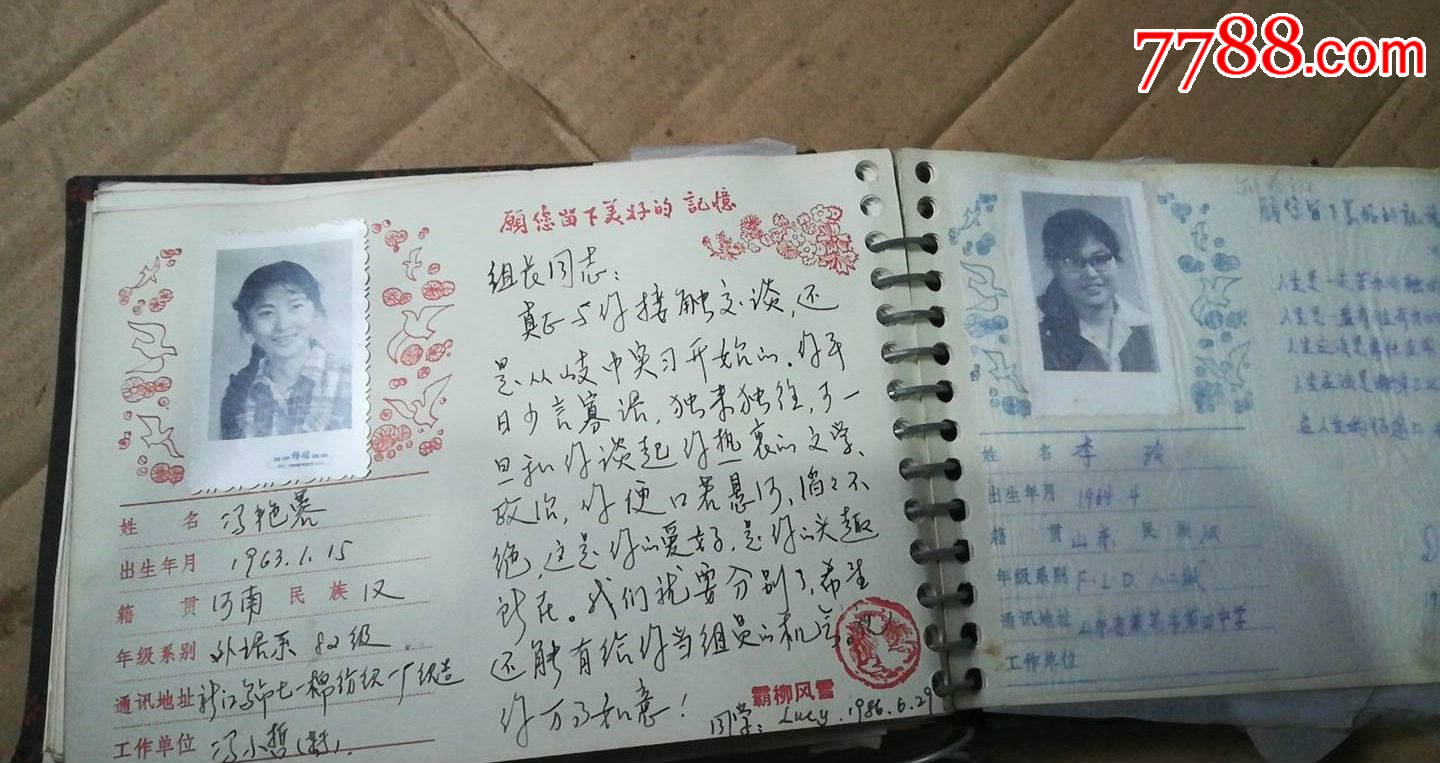 7788.com
願您留下美好的記憶
组长同志:
真正与你接触交谈,还
是从岐中实习开始的.你平
日少言寡语,独来独往,可一
旦和你谈起你热衷的文学、
政治,你便口若悬河,滔々不
绝,这是你的爱好,是你的兴趣
所在。我们就要分别了,希望
还能有给你当组员的机会。
你万事如意!
同学: Lucy. 1986.6.29
霸柳风雪
姓 名 冯艳
出生年月 1963.1.15
籍 贯 河南 民 族 汉
年级系别 外语系 82级
通讯地址 七一棉纺织一厂织造
工作单位 冯小哲
願您留下美好的記
人生是一
人生是一
人生应该是
人生应该是
在人生的
姓 名 李 玲
出生年月 1964.4
籍 贯 山东 民 族 汉
年级系别 F.L.D. 八二级
通讯地址 山东省莱芜市第四中学
工作单位